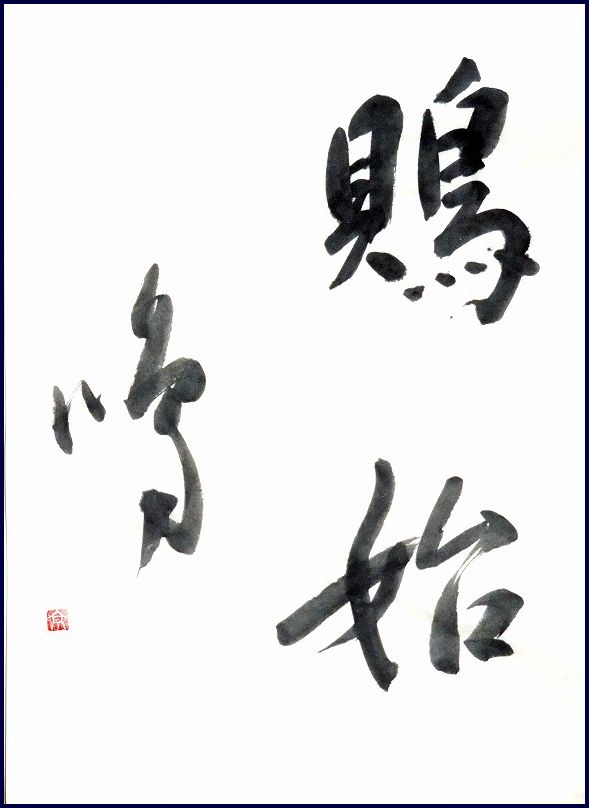 鵙始
鳴